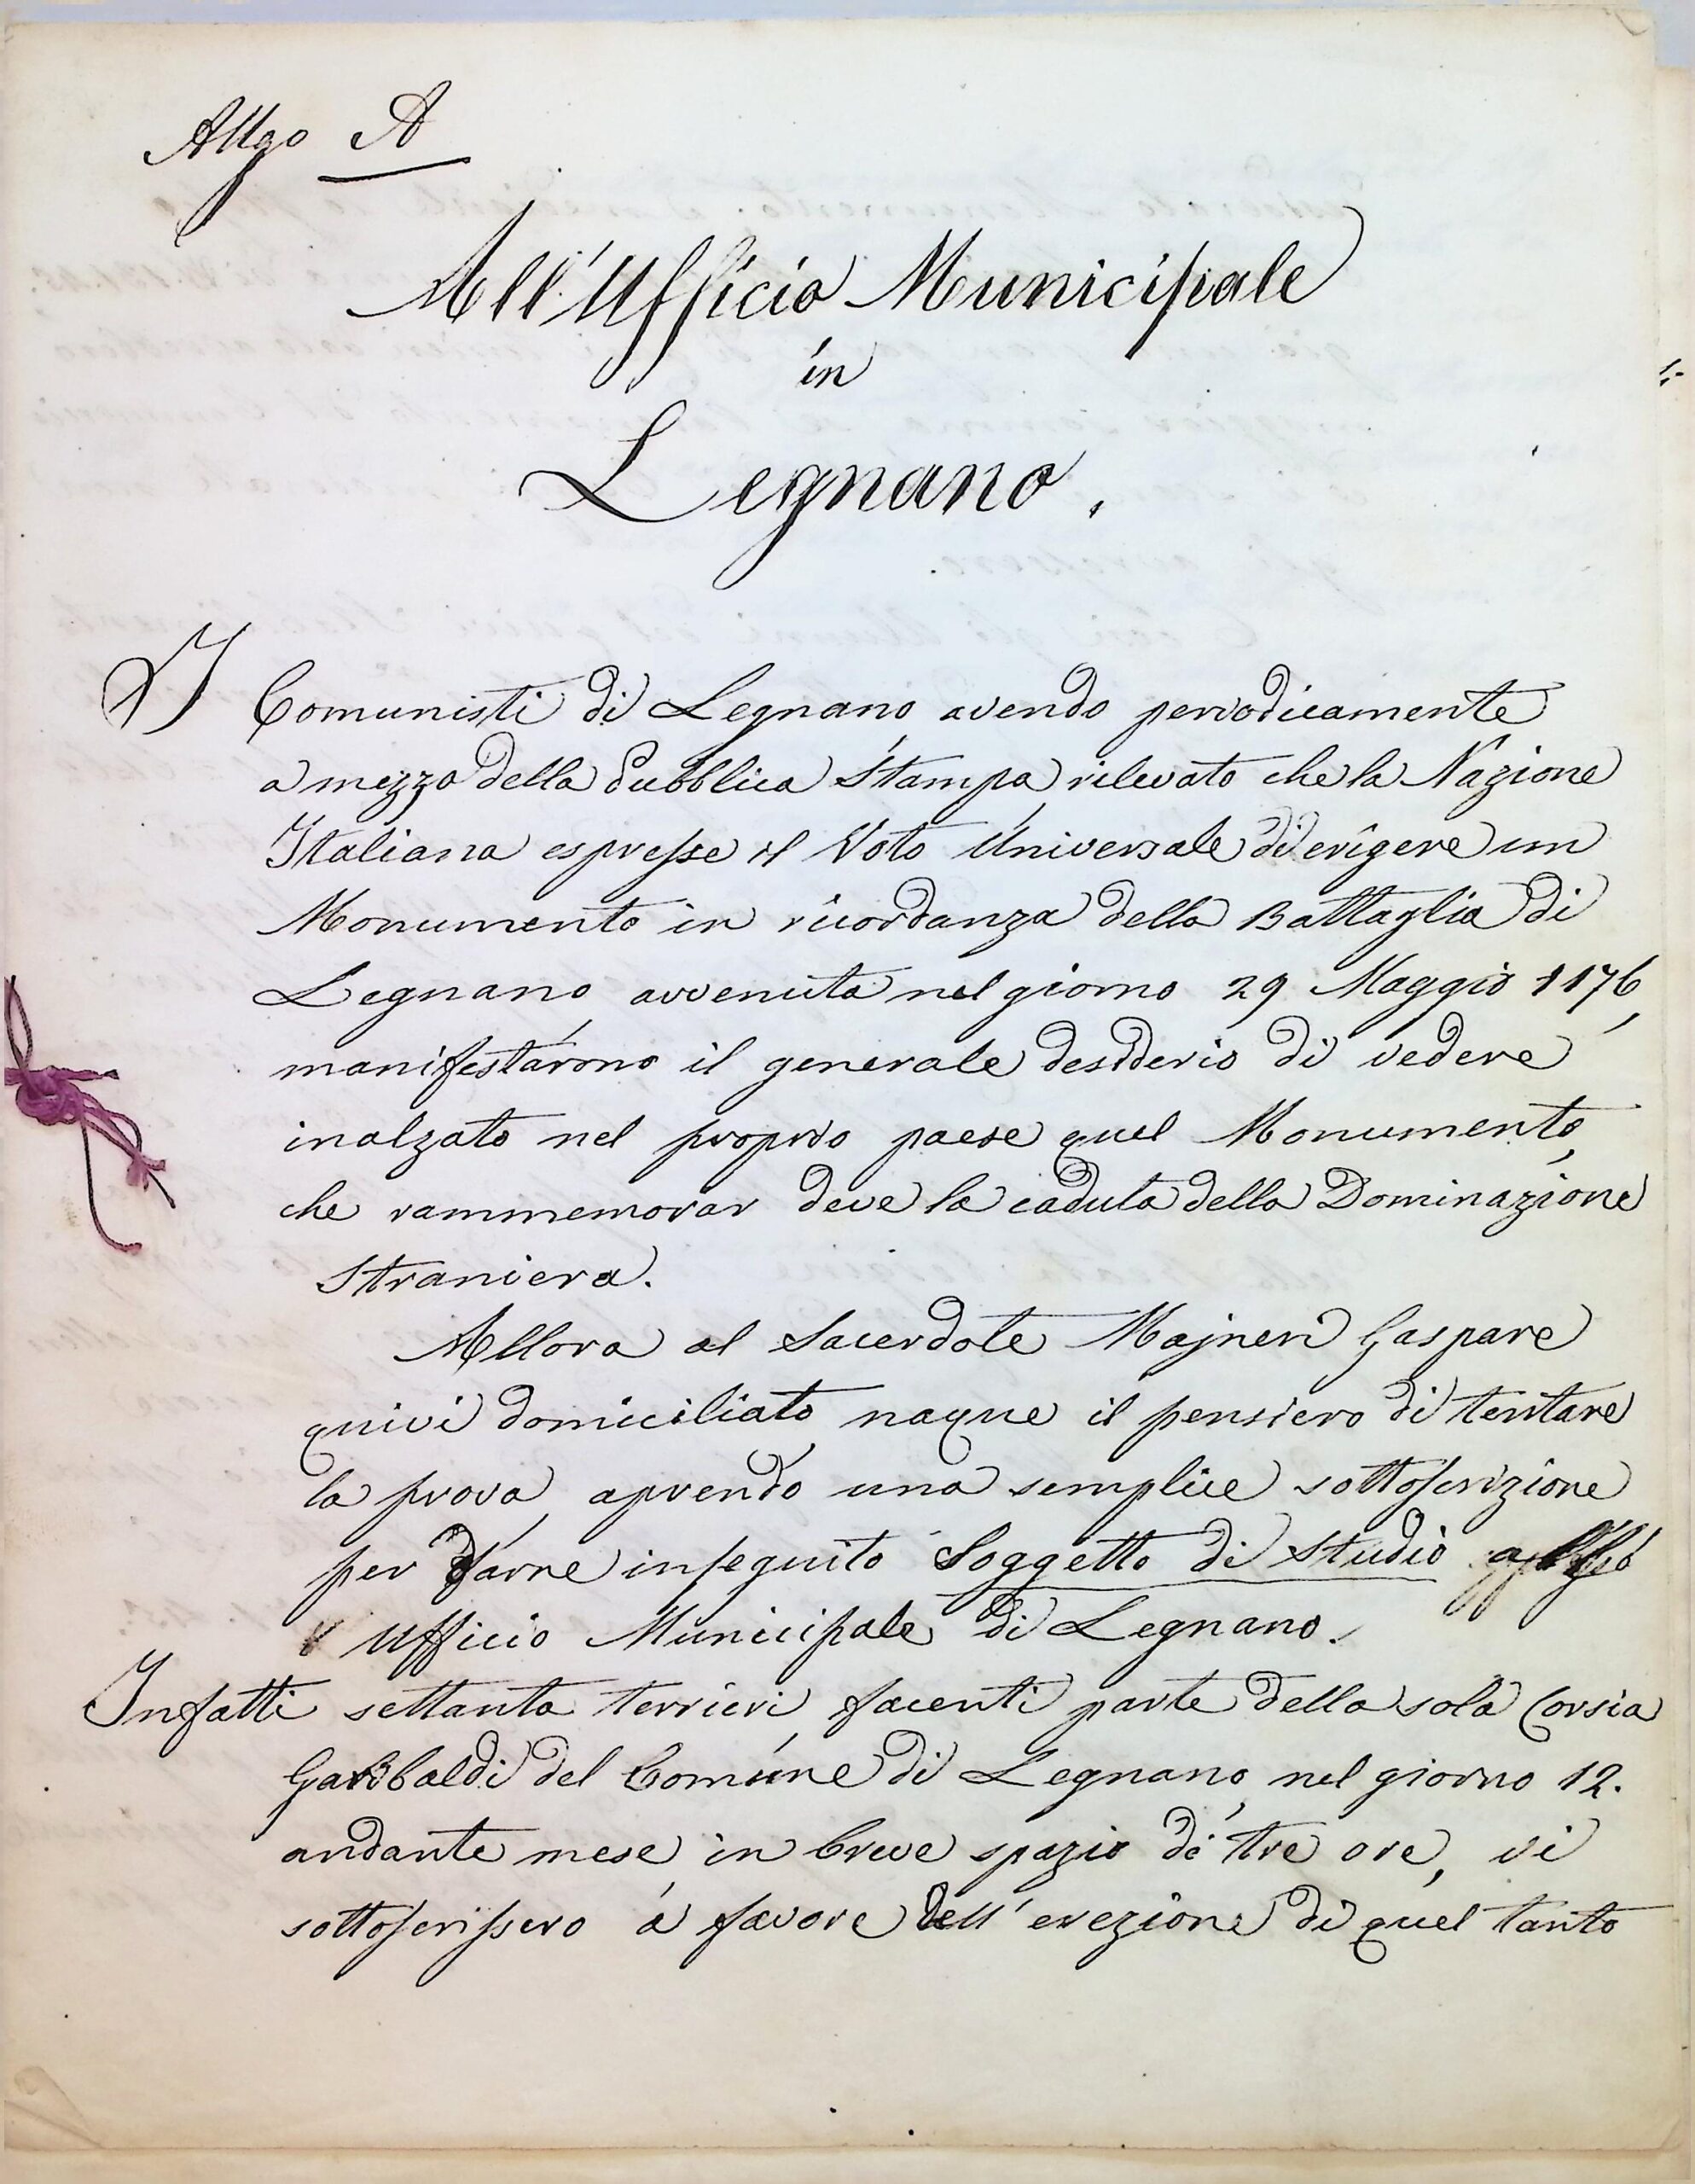 Allgo A
All'Ufficio Municipale
in
Legnano.
I Comunisti di Legnano, avendo periodicamente
a mezzo della Pubblica Stampa, rilevato che la Nazione
Italiana espresse il Voto Universale di erigere un
Monumento in ricordanza della Battaglia di
Legnano, avvenuta nel giorno 29 Maggio 1176,
manifestarono il generale desiderio di vedere
inalzato nel proprio paese quel Monumento,
che rammemorar deve la caduta della Dominazione
Straniera.
Allora al Sacerdote Majneri Gaspare
quivi domiciliato, naque il pensiero di tentare
la prova, aprendo una semplice sottoscrizione
per farne inseguito Soggetto di Studio
Ufficio Municipale di Legnano.
Infatti settanta terrieri, facenti parte della sola Corsia
Garibaldi del Comune di Legnano, nel giorno 12.
andante mese, in breve spazio di tre ore, vi
sottoscrissero a favore dell'erezione di quel tanto